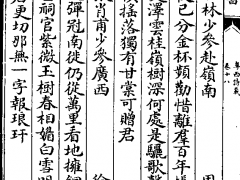 粤西詩載
卷十八
林少參赴嶺南
已分金杯頻勸惜離羣百年
澤雲桂嶺樹深何處是驪歌聲
搖落獨有甘棠可贈君
肖甫少參廣西
彈冠南徙仍從萬里看地擁
祠官紫微玉樹春相媚白雪
更切那無一字報琅玕